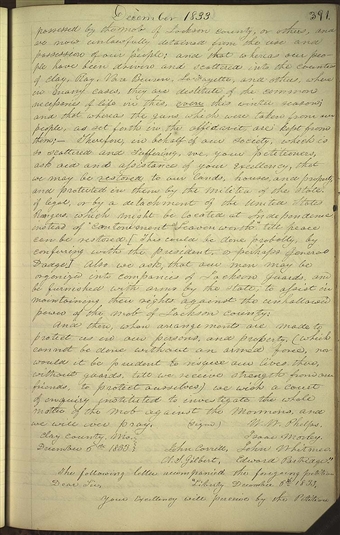 December 1833.
391.
possessed by the mob of Jackson county, or others, and
are now unlawfully detained from the use and
possession of our people; and that whereas our peo-
ple have been driven and scattered into the counties
of Clay, Ray, Van Buren, La Fayette, and others, where
in many cases, they are destitute of the common
necessaries of life in this, even this winter season;
and that whereas the guns which were taken from our
people, as set forth in the affidavit are kept from
them;— Therefore, in behalf of our society, which is
so scattered and suffering, we, your petitioners,
ask aid and assistance of your Excellency, that
we may be restored to our lands, houses, and property,
and protected in them by the militia of the State
if legal, or by a detachment of the United States
Rangers, which might be located at Independence
instead of "Cantonment Leavenworth" till peace
can be restored. [This could be done probably, by
conferring with the President, or perhaps General
Dodge.] Also, we ask, that our men may be
organized into companies of Jackson Guards, and
be furnished with arms by the State, to assist in
maintaining their rights against the unhallowed
power of the mob of Jackson county.
And then, when arrangements are made to
protect us in our persons, and property, (which
cannot be done without an armed force, nor
would it be prudent to risk our lives there,
without guards, till we receive strength from our
friends, to protect ourselves) we wish a court
of enquiry instituted to investigate the whole
matter of the mob against the Mormons, and
we will ever pray. (Signed) W. W. Phelps.
Clay County, Mo. Isaac Morley.
December 6th 1833. John Corrill, John Whitmer
A. S. Gilbert. Edward Partridge."
The following letter accompanied the foregoing petition
Dear Sir, "Liberty, December 6th 1833.
Your excellency will perceive by the Petition